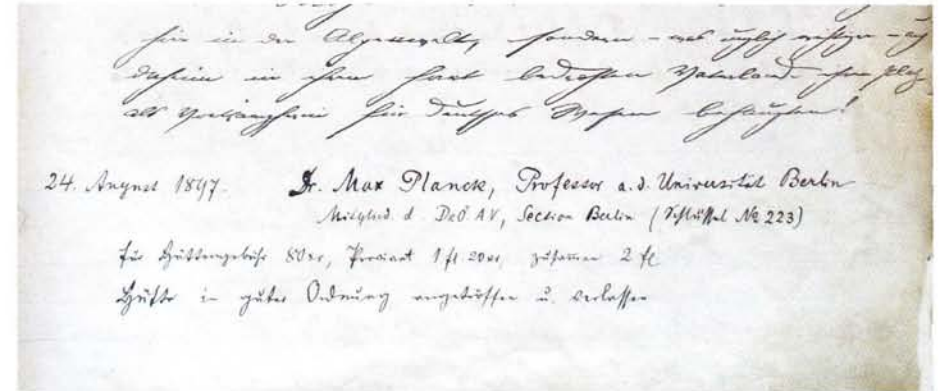 hin in der Alpenwelt, sondern – was noch wichtiger – auch
daheim in ihrem hart bedrohten Vaterland ihren Platz
als für deutsches Wesen behaupten!
24. August 1897. Dr. Max Planck, Professor a. d. Universität Berlin
Mitglied d. DuÖ AV, Section Berlin (Schlüssel № 223)
für Hüttengebühr 80 xr, Proviant 1 fl. 20 xr, zusammen 2 fl
Hütte in guter Ordnung angetroffen u. verlassen